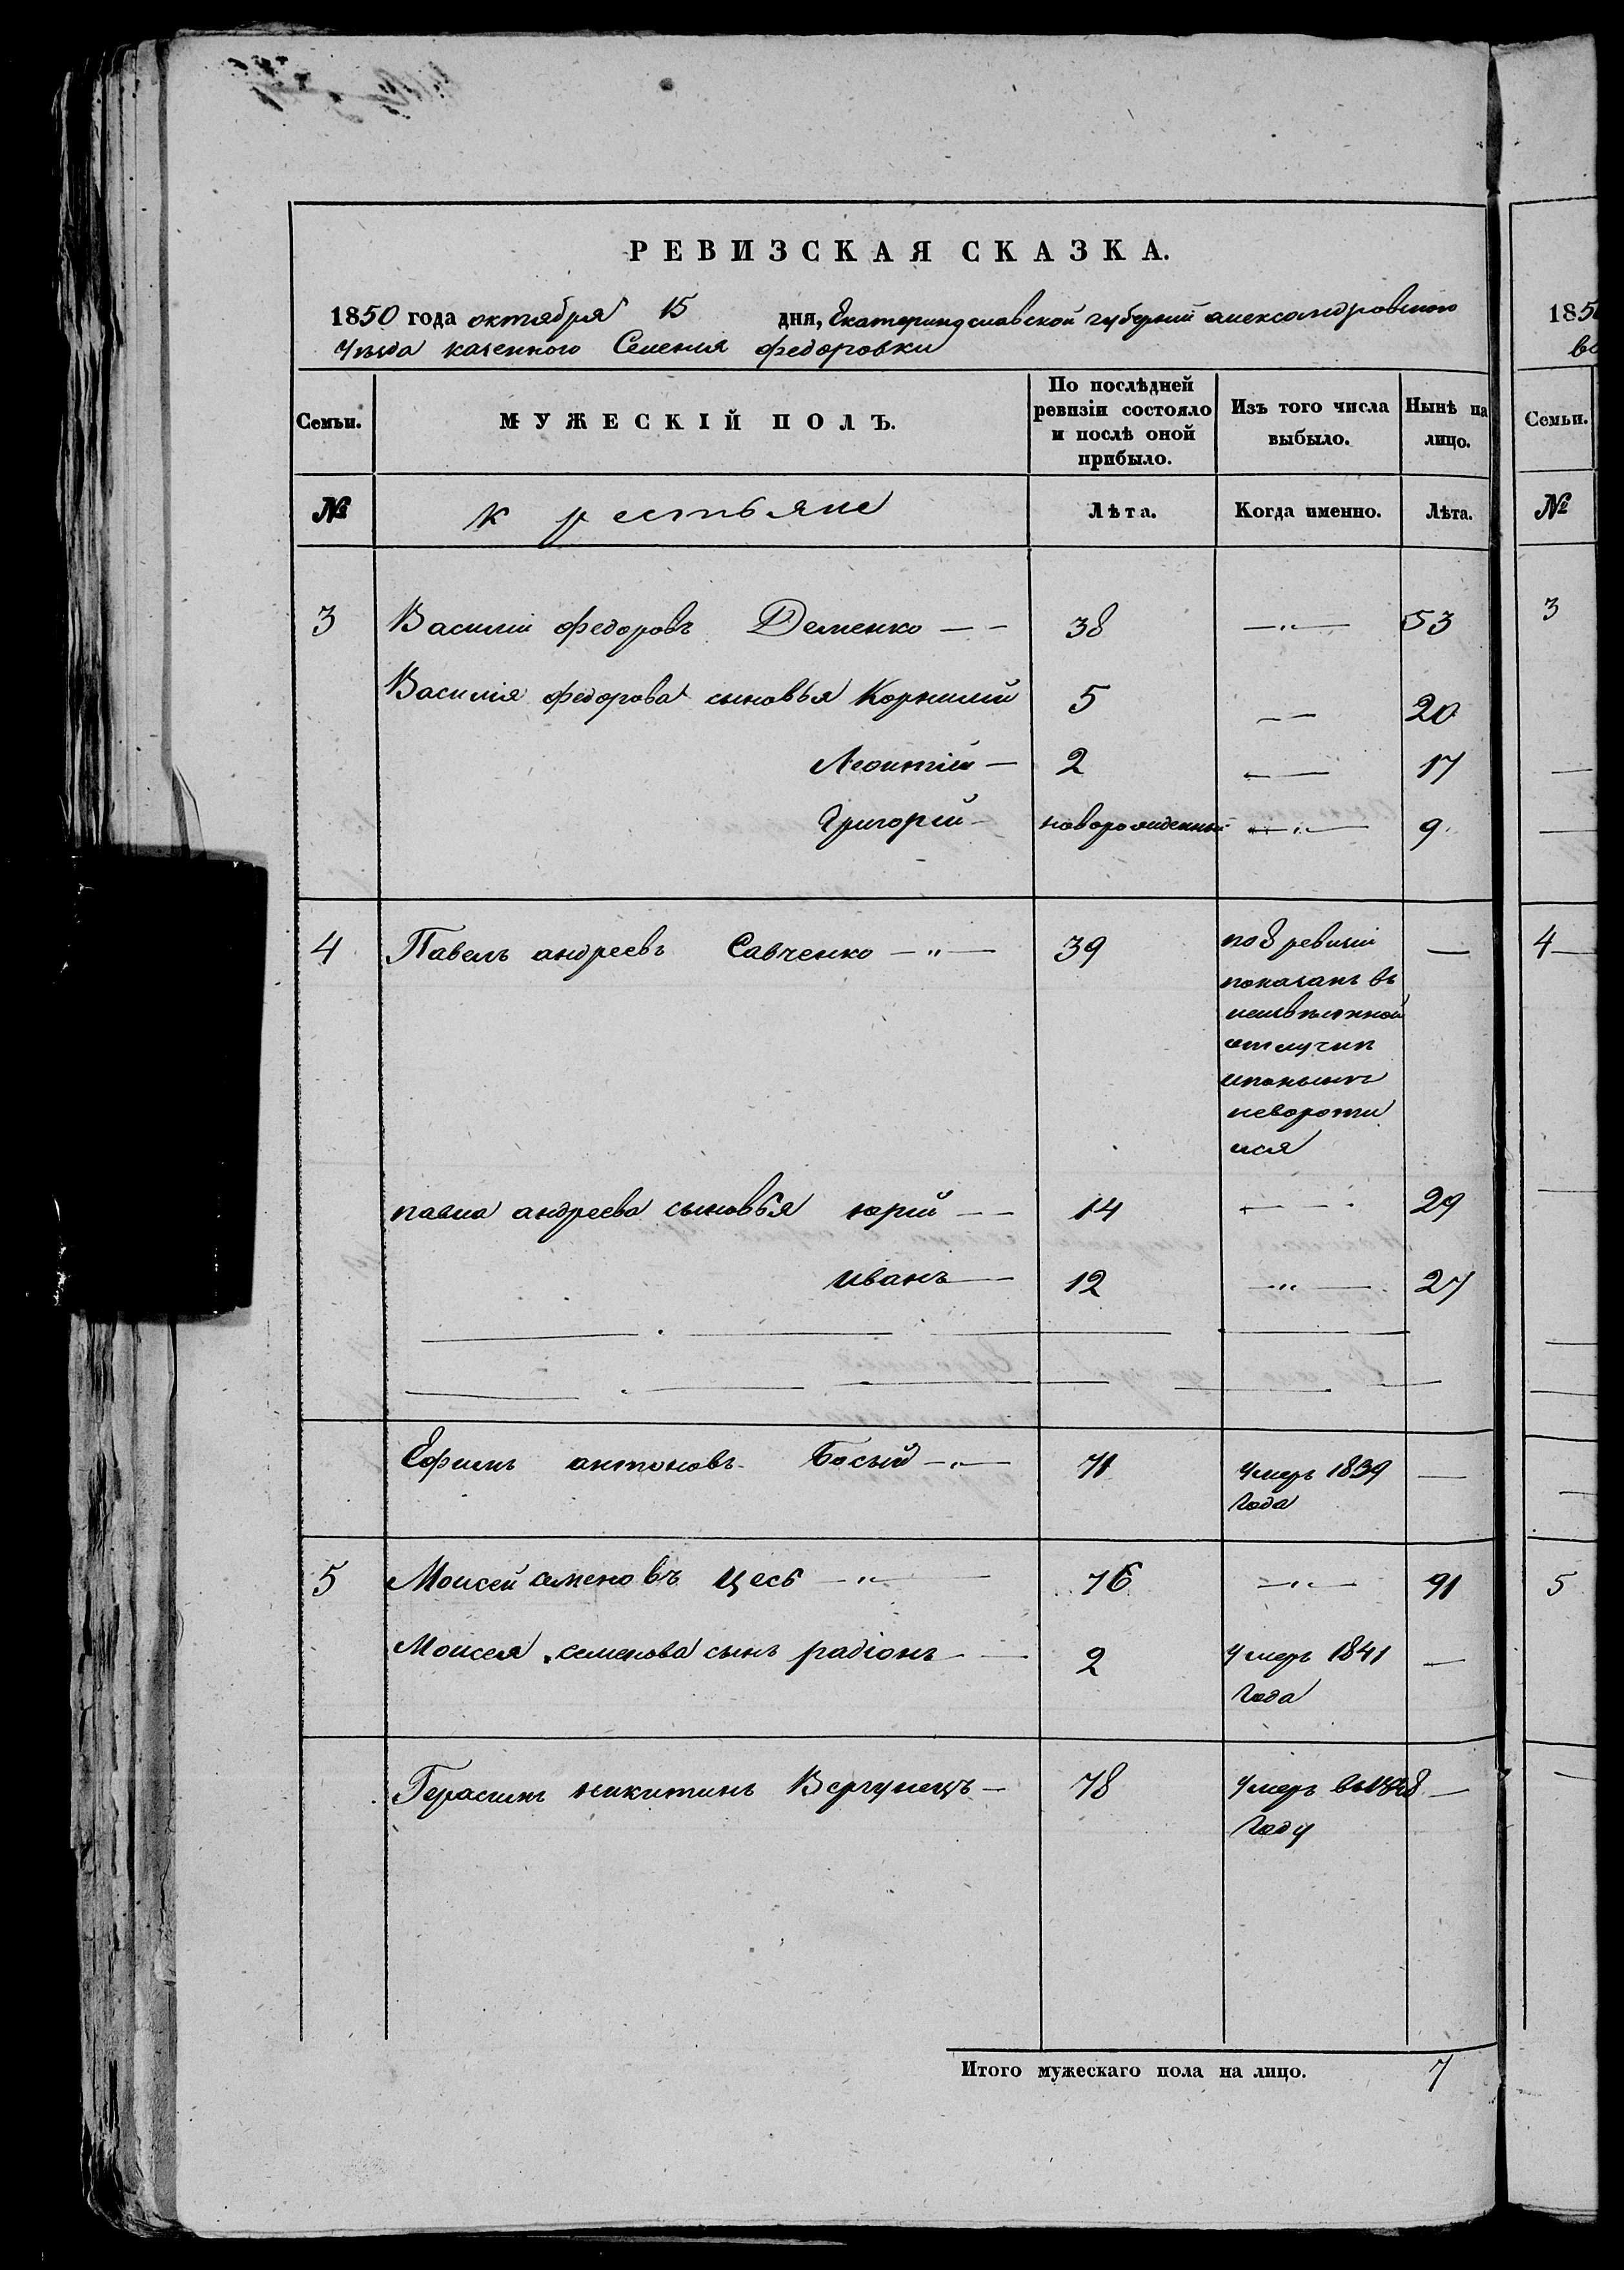 РЕВИЗСКАЯ СКАЗКА.
1850 года октября 15 дня, Екатеринославской губернии александровского
Уѣзда казенного Селения федоровки
Семьи. МУЖЕСКІЙ ПОЛЪ. По послѣдней ревизіи состояло и послѣ оной прибыло. Изъ того числа выбыло. Нынѣ на лицо.
№ крестьяне Лѣта. Когда именно. Лѣта.
3 Василии федоровъ Деменко 38 53
Василия федорова сыновья Корнилий 5 20
Леонтій 2 17
Григорий новорожденный 9
4 Павелъ андреевъ Савченко — " — 39 по 8 ревизии —
показанъ въ
неизвѣстной
отлучкѣ
и понынѣ
невороти
лся
павла андреева сыновья юрий 14 29
иванъ 12 27
Ефимъ антоновъ Босый 71 Умеръ 1839 —
Года
5 Моисей семеновъ Цесь 76 91
Моисея семенова сынъ радіонъ 2 Умеръ 1841 —
Года
Герасимъ никитинъ Вергунецъ — 78 Умеръ —
Году
Итого мужескаго пола на лицо. 7
185
Семьи.
№
3
4
5